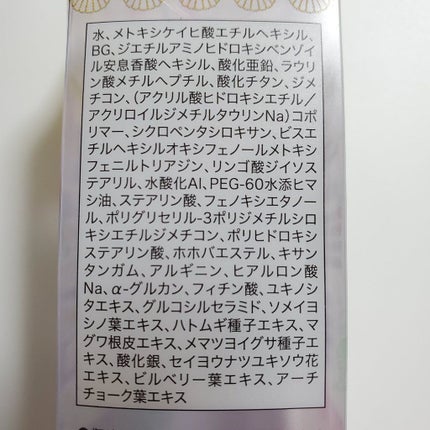 水、メトキシケイヒ酸エチルヘキシル、
BG、ジエチルアミノヒドロキシベンゾイ
ル安息香酸ヘキシル、酸化亜鉛、ラウリ
ン酸メチルヘプチル、酸化チタン、ジメ
チコン、(アクリル酸ヒドロキシエチル/
アクリロイルジメチルタウリンNa)コポ
リマー、シクロペンタシロキサン、ビスエ
チルヘキシルオキシフェノールメトキシ
フェニルトリアジン、リンゴ酸ジイソス
テアリル、水酸化Al、PEG-60水添ヒマ
シ油、ステアリン酸、フェノキシエタノー
ル、ポリグリセリル-3ポリジメチルシロ
キシエチルジメチコン、ポリヒドロキシ
ステアリン酸、ホホバエステル、キサン
タンガム、アルギニン、ヒアルロン酸
Na、α-グルカン、フィチン酸、ユキノシ
タエキス、グルコシルセラミド、ソメイヨ
シノ葉エキス、ハトムギ種子エキス、マ
グワ根皮エキス、メマツヨイグサ種子エ
キス、酸化銀、セイヨウナツユキソウ花
エキス、ビルベリー葉エキス、アーチ
チョーク葉エキス